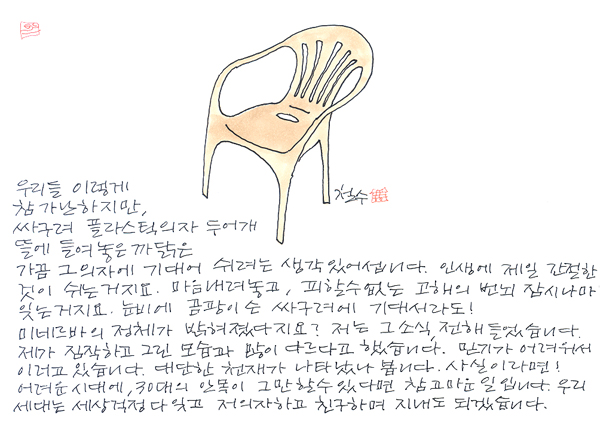 철수
우리들 이렇게
참 가난하지만,
싸구려 플라스틱의자 두어개
뜰에 들여놓은 까닭은
가끔 그의자에 기대어 쉬려는 생각 있어섭니다. 인생에 제일 간절한
것이 쉬는거지요. 마음내려놓고, 피할수없는 고해의 번뇌 잠시나마
잊는거지요. 눈비에 곰팡이슨 싸구려에 기대서라도!
미네르바의 정체가 밝혀졌다지요? 저는 그소식, 전해 들었습니다.
제가 짐작하고 그린 모습과 많이 다르다고 했습니다. 믿기가 어려워서
이러고 있습니다. 대단한 천재가 나타났나 봅니다. 사실이라면!
어려운 시대에, 30대의 안목이 그만 할수 있다면 참 고마운 일 입니다. 우리
세대는 세상걱정 다 잊고 저 의자하고 친구하며 지내도 되겠습니다.